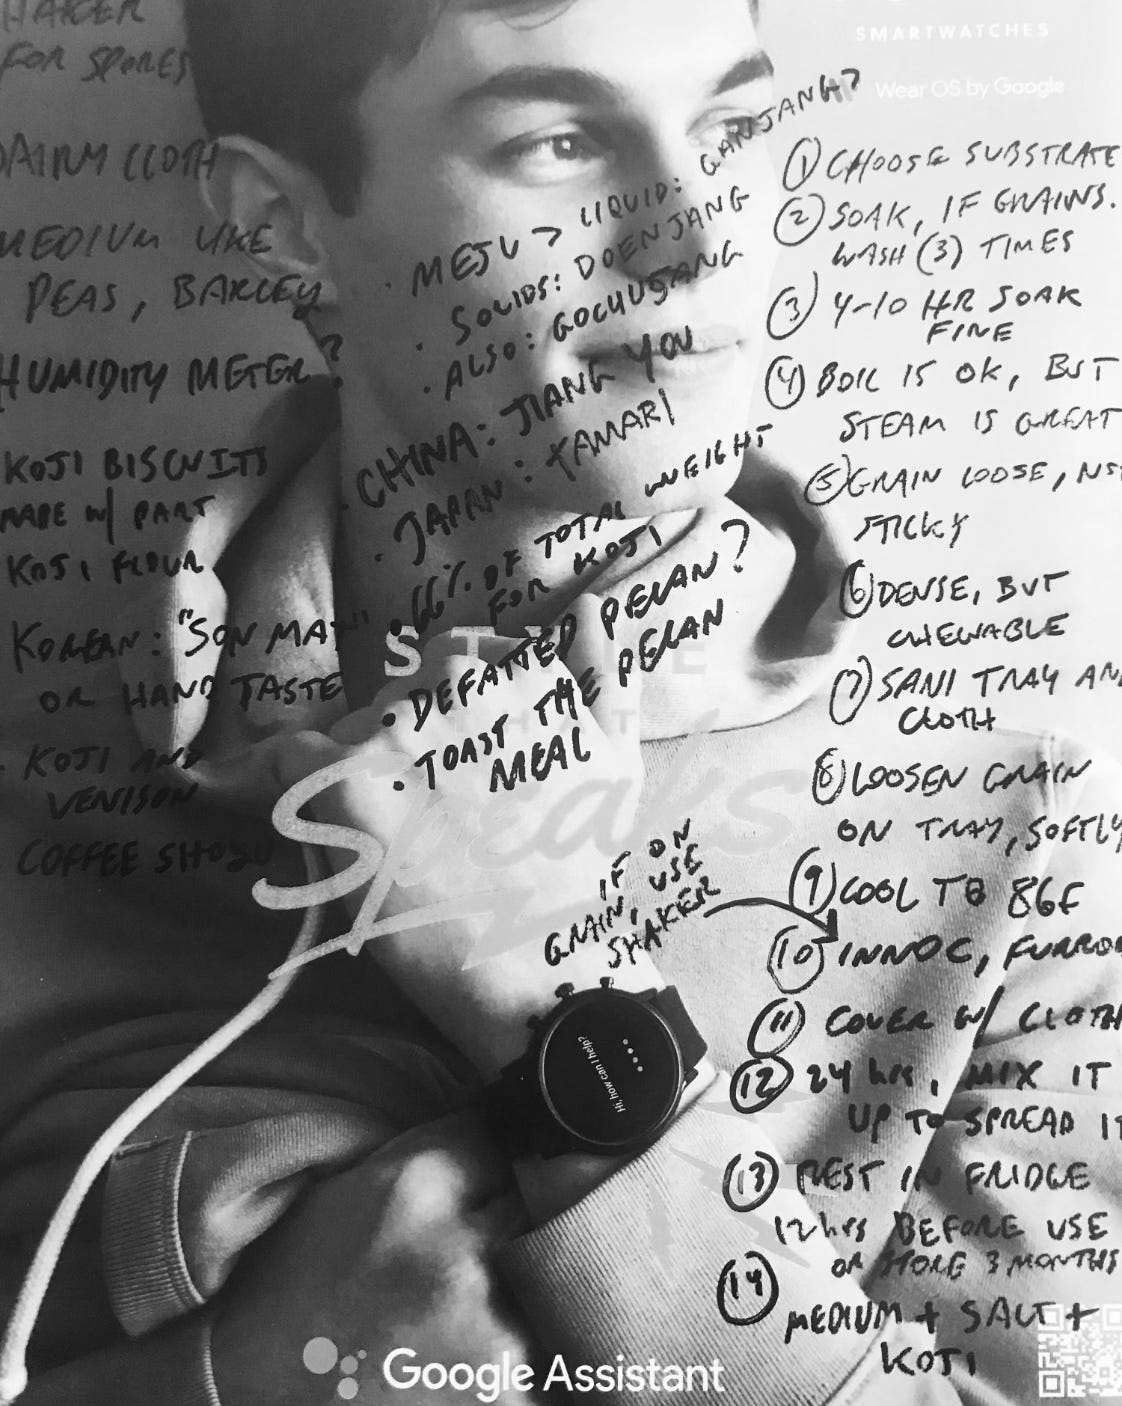 SHAKER
FOR SPORES
DAIRY CLOTH
MEDIUM LIKE
PEAS, BARLEY
HUMIDITY METER?
KOJI BISCUITS
MADE W/ PART
KOJI FLOUR
KOREAN: "SON MAT"
OR HAND TASTE
- KOJI AND
VENISON
COFFEE SHOYU
SMARTWATCHES
Wear OS by Google
· MEJU > LIQUID: GANJANG?
· SOLIDS: DOENJANG
· ALSO: GOCHUJANG
· CHINA: JIANG YOU
· JAPAN: TAMARI
• 66% OF TOTAL WEIGHT
FOR KOJI
• DEFATTED PECAN?
• TOAST THE PECAN
MEAL
STYLE
THAT
Speaks
IF ON
GRAIN, USE
SHAKER
Hi, how can I help?
① CHOOSE SUBSTRATE
② SOAK, IF GRAINS.
WASH (3) TIMES
③ 4-10 HR SOAK
FINE
④ BOIL IS OK, BUT
STEAM IS GREAT
⑤ GRAIN LOOSE, NOT
STICKY
⑥ DENSE, BUT
CHEWABLE
⑦ SANI TRAY AND
CLOTH
⑧ LOOSEN GRAIN
ON TRAY, SOFTLY
⑨ COOL TO 86F
⑩ INNOC, FURROW
⑪ COVER W/ CLOTH
⑫ 24 hrs, MIX IT
UP TO SPREAD IT
⑬ REST IN FRIDGE
12 hrs BEFORE USE
OR STORE 3 MONTHS
⑭ MEDIUM + SALT +
KOJI
Google Assistant